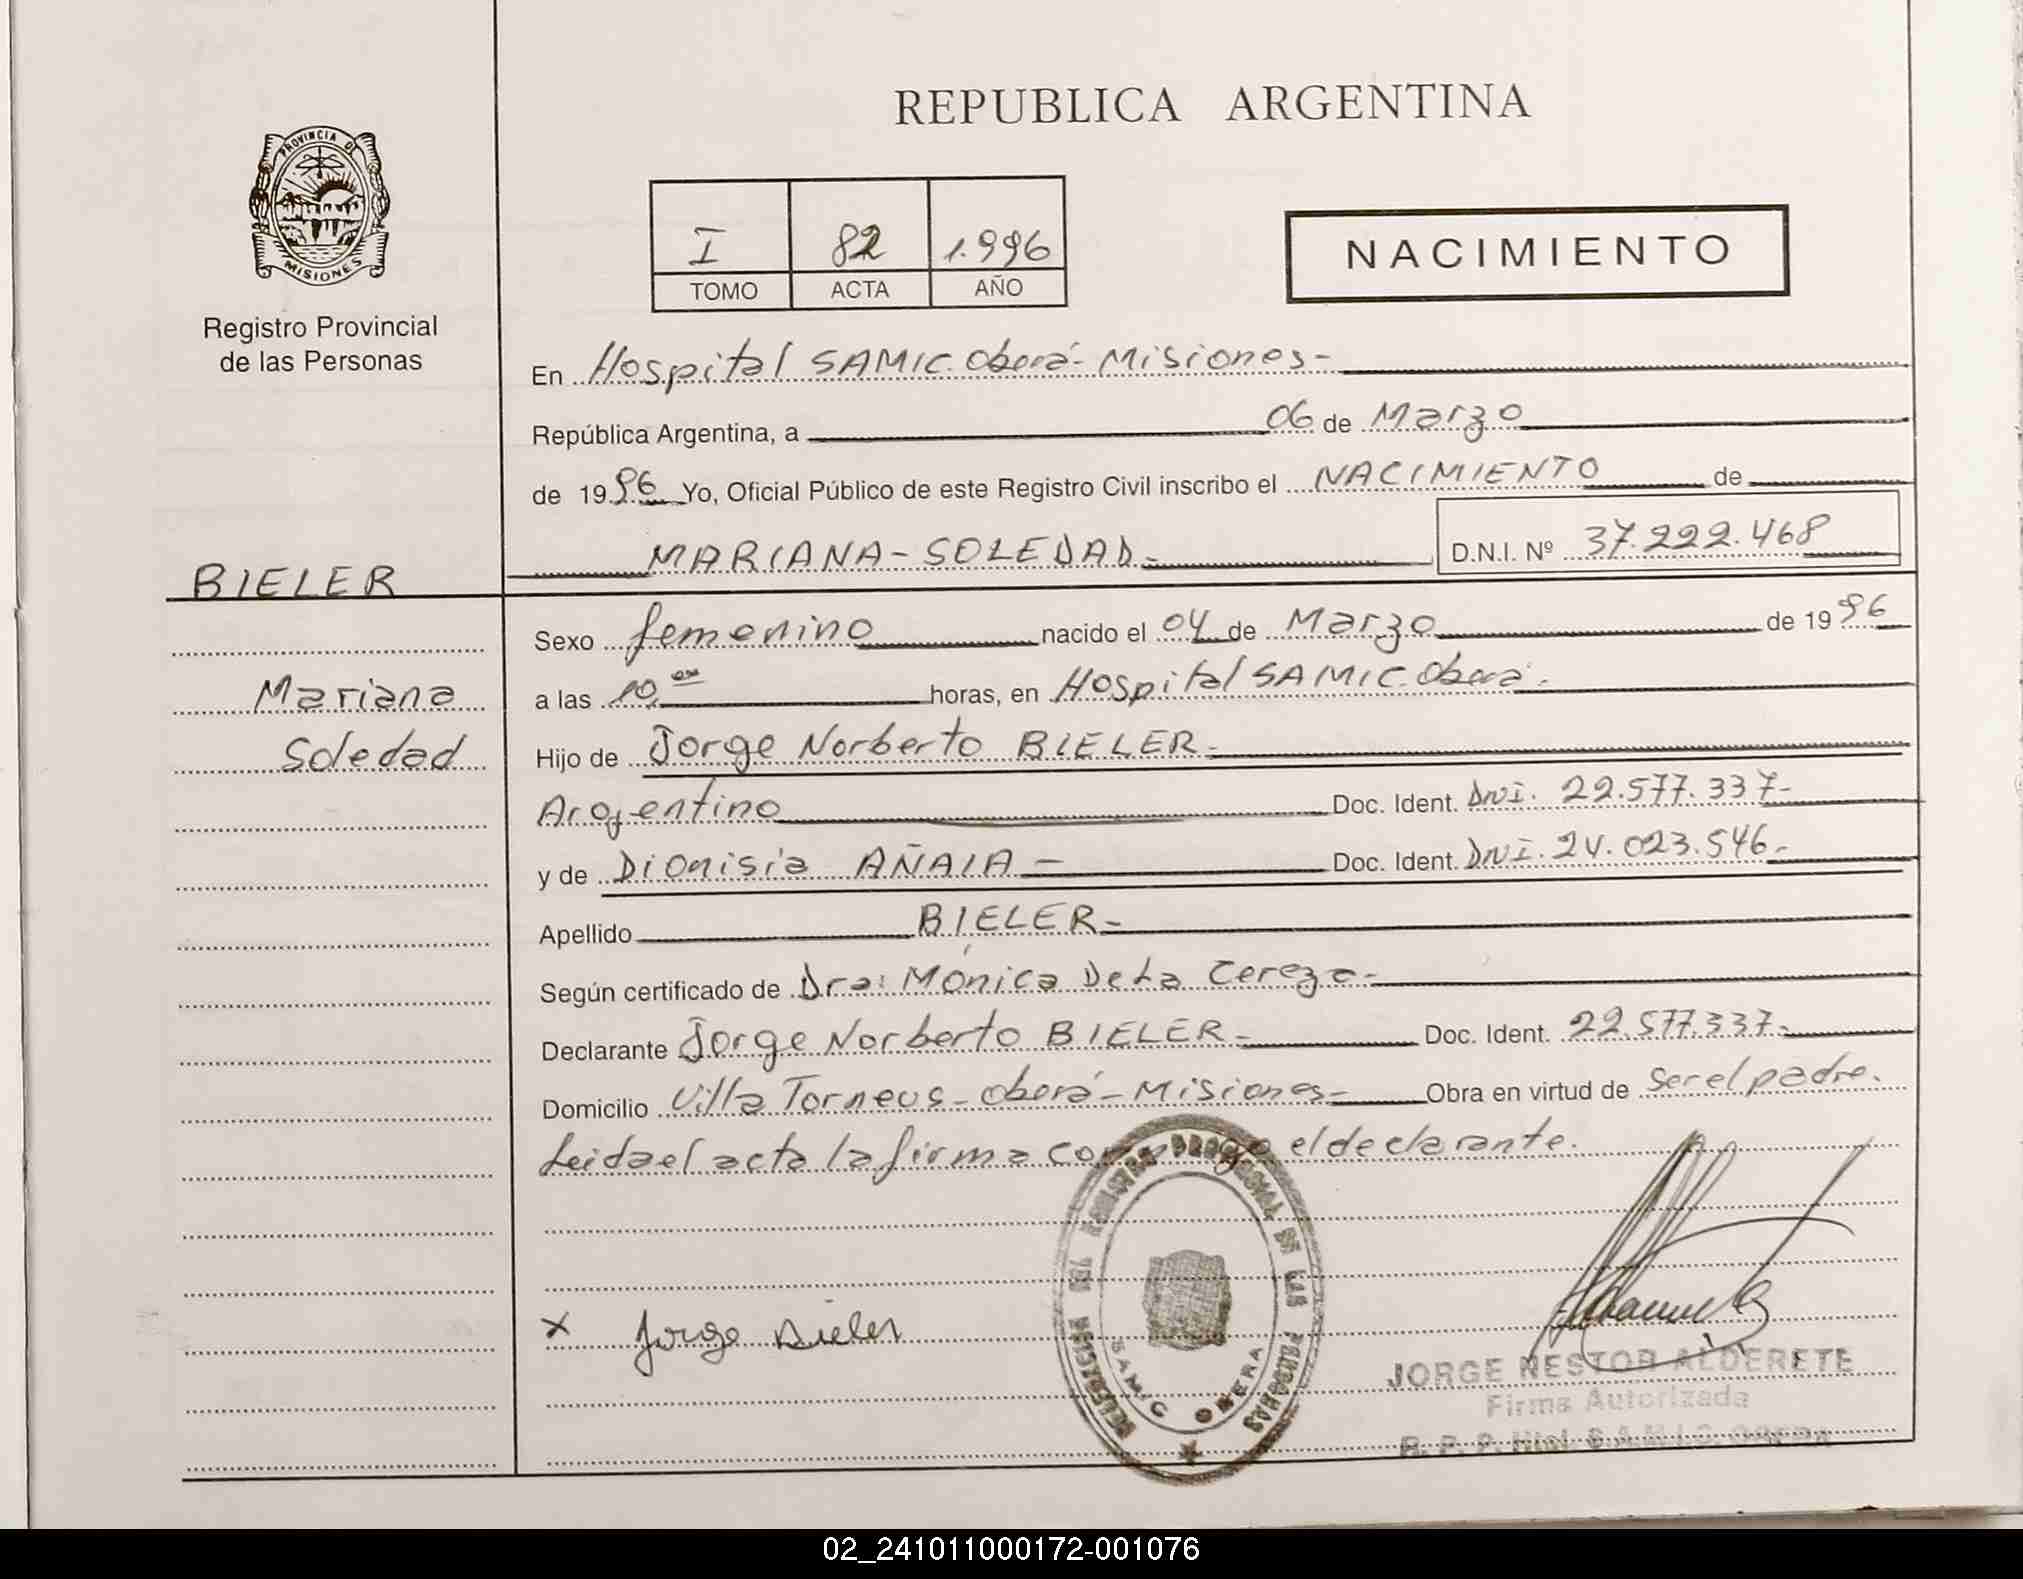 REPUBLICA ARGENTINA
PROVINCIA DE
MISIONES
Registro Provincial
de las Personas
I 82 1.996
TOMO ACTA AÑO
NACIMIENTO
En Hospital SAMIC Oberá - Misiones -
República Argentina, a 06 de Marzo
de 1996 Yo, Oficial Público de este Registro Civil inscribo el NACIMIENTO de
MARIANA - SOLEDAD - D.N.I. Nº 37.222.468
BIELER
Mariana
Soledad
Sexo femenino nacido el 04 de Marzo de 1996
a las 10, horas, en Hospital SAMIC. Oberá.
Hijo de Jorge Norberto BIELER -
Argentino Doc. Ident. DNI. 22.577.337-
y de Dionisia AÑAIA - Doc. Ident. DNI. 24.023.546-
Apellido BIELER -
Según certificado de Dra: Mónica De La
Declarante Jorge Norberto BIELER - Doc. Ident. 22.577.337-
Domicilio Villa Torneus - Oberá - Misiones - Obra en virtud de ser el padre.
Leida el acta la firma el declarante.
x Jorge Bieler
SAMIC OBERA
JORGE NESTOR ALDERETE
Firma Autorizada
R. P. P. Htal. S.A.M.I.C. OBERA
02_241011000172-001076